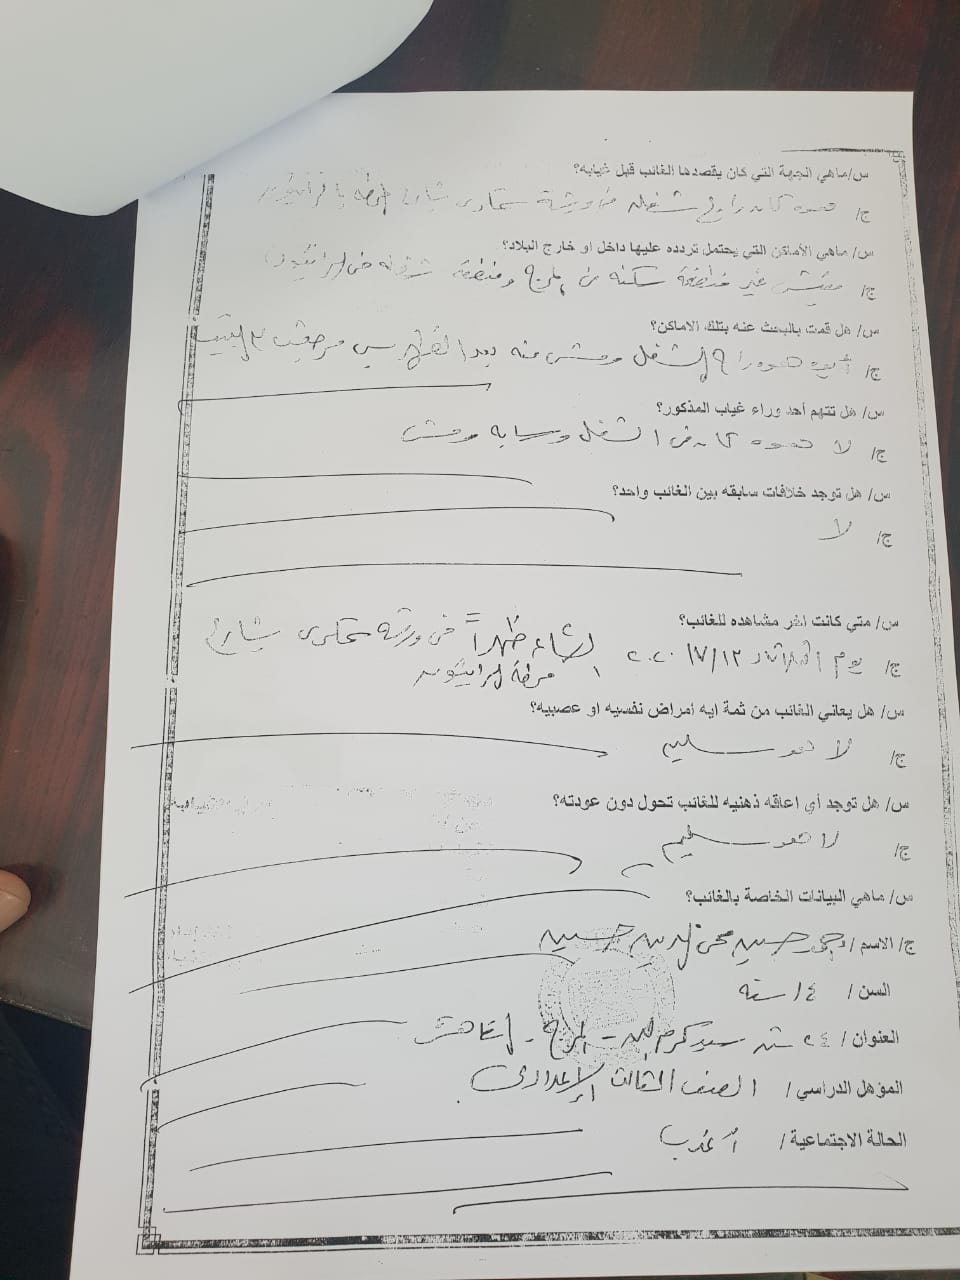 س/ماهي الجهة التي كان يقصدها الغائب قبل غيابه؟
ج/ هوه كان رايح شغله في ورشة سمكري شارع
س/ ماهي الأماكن التي يحتمل تردده عليها داخل او خارج البلاد؟
ج/ مفيش غير منطقة سكنه في المرج ومنطقة شغله في
س/ هل قمت بالبحث عنه بتلك الاماكن؟
ج/ أيوه هوه راح الشغل ومشى منه بعد الظهر بس مرجعش البيت
س/ هل تتهم أحد وراء غياب المذكور؟
ج/ لا هوه كان في الشغل وسابه ومشى
س/ هل توجد خلافات سابقه بين الغائب واحد؟
ج/ لا
س/ متي كانت اخر مشاهده للغائب؟
ج/ يوم ١٣/٧/٢٠٢٠ ظهراً في ورشة سمكري شارع
س/ هل يعاني الغائب من ثمة ايه امراض نفسيه او عصبيه؟
ج/ لا هو سليم
س/ هل توجد أي اعاقه ذهنيه للغائب تحول دون عودته؟
ج/ لا هو سليم
س/ ماهي البيانات الخاصة بالغائب؟
ج/ الاسم / حسين محي الدين حسين
السن / ١٤ سنه
العنوان / ٢٤ ش المرج - القاهرة
المؤهل الدراسي / الصف الثالث الإعدادي
الحالة الاجتماعية / أعذب